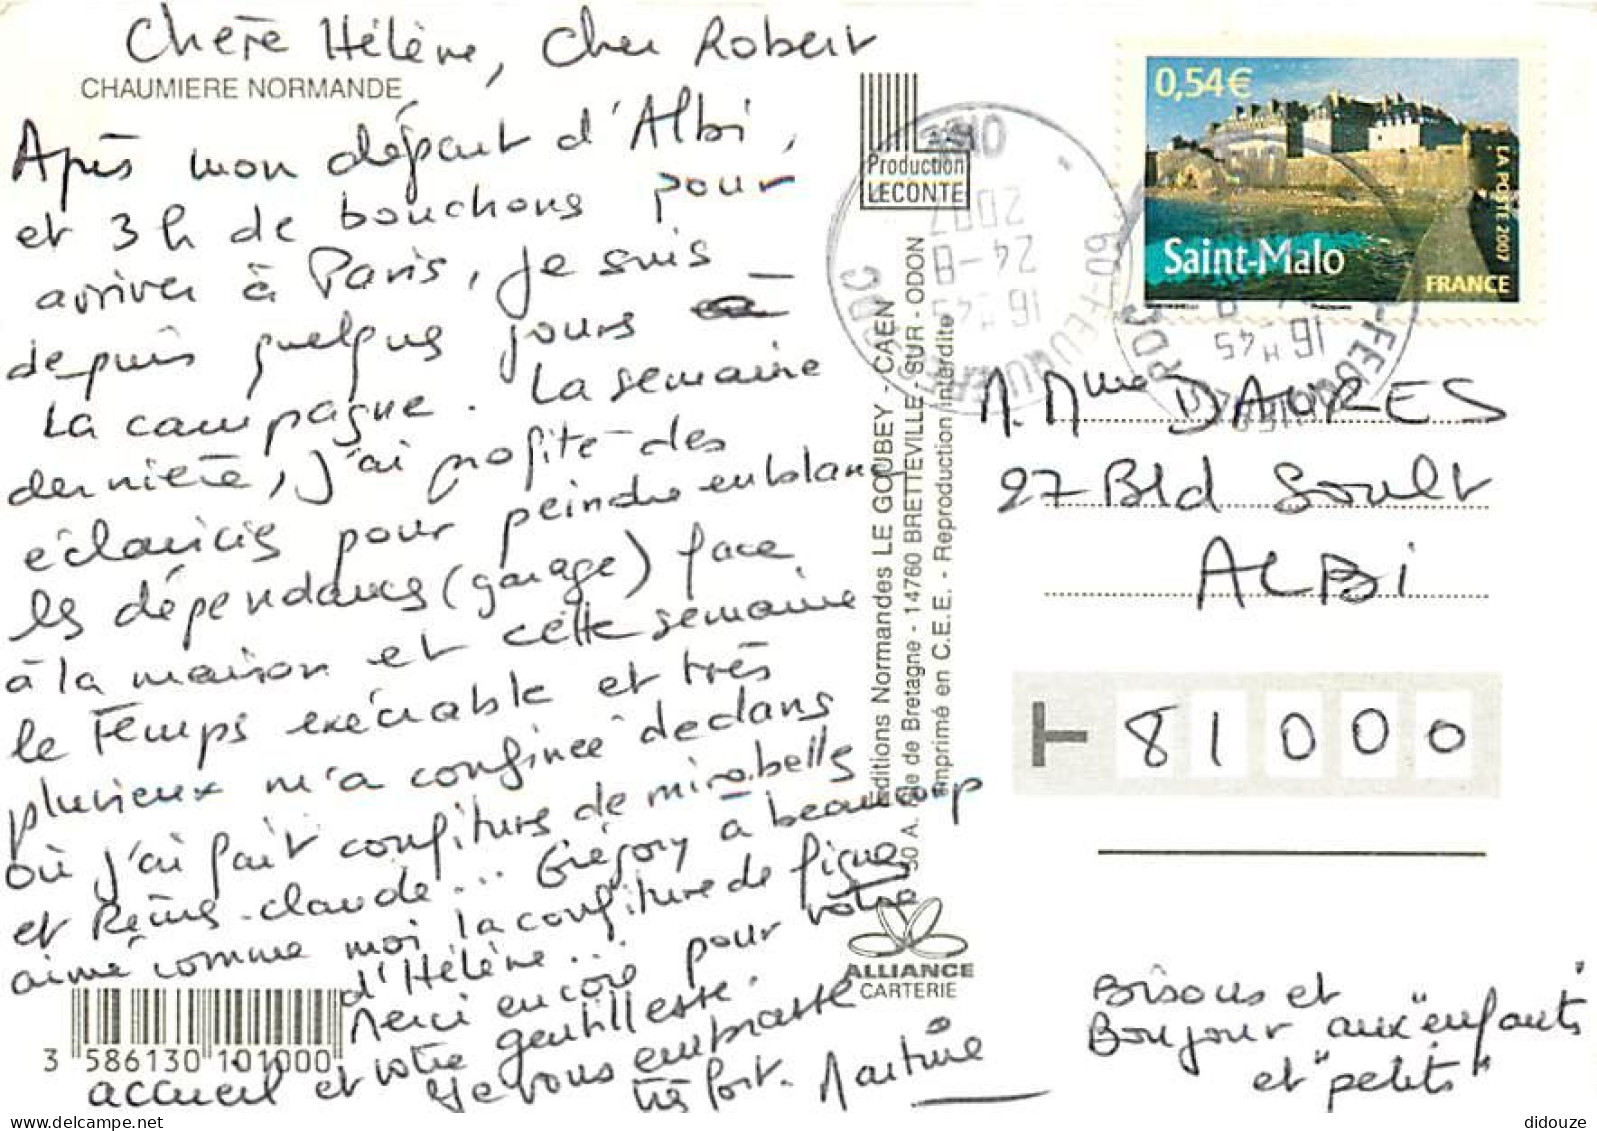 Chère Hélène, Cher Robert
CHAUMIERE NORMANDE
Après mon départ d'Albi,
et 3h de bouchons pour
arriver à Paris, je suis
depuis quelques jours à
la campagne. La semaine
dernière, j'ai profité des
éclaircies pour peindre en blanc
les dépendances (garage) face
à la maison et cette semaine
le temps exécrable et très
pluvieux m'a confinée dedans
où j'ai fait confitures de mirabelles
et Reines-claude... Grégory a beaucoup
aimé comme moi la confiture de figues
d'Hélène...
Merci encore pour votre
accueil et votre gentillesse.
Je vous embrasse
très fort. Martine
3 586130 101000
Production
LECONTE
Editions Normandes LE GOUBEY - CAEN
de Bretagne - 14760 BRETTEVILLE - SUR - ODON
Imprimé en C.E.E. - Reproduction interdite
ALLIANCE
CARTERIE
OISE
2007
24-8
16H45
60-FEUQUIERES
0,54€
Saint-Malo
FRANCE
LA POSTE 2007
16H45
M. Mme DAURES
27 Bld Soult
ALBi
81000
Bisous et
Bonjour aux "enfants"
et "petits"
didouze